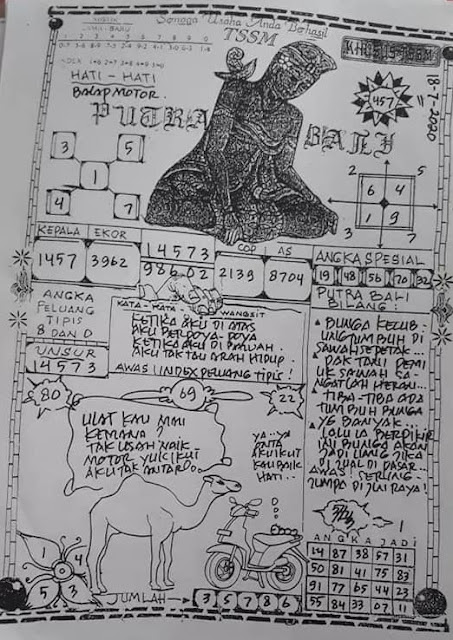 Semoga Usaha Anda Berhasil
TSSM
KHUSUS TSSM
1 2 3 4 5 6 7 8 9 0
18-7-2020
HATI - HATI
BALAP MOTOR.
457
PUTRA
BALI
3 5
1
4 7
2 5
6 4
1 9
3 7
KEPALA EKOR
1457 3962
14573
986.02
COP AS
2139 8704
ANGKA SPESIAL
19 48 56 70 32
ANGKA
PELUANG
TIPIS
8 DAN 0
UNSUR
14573
KATA - KATA WANGSIT
KETIKA AKU DI ATAS
AKU BERDOYA-DOYA
KETIKA AKU DI BAWAH.
AKU TAK TAU ARAH HIDUP.
AWAS! INDEX PELUANG TIPIS!
PUTRA BALI
BILANG:
BUNGA
TUMBUH DI
SAWAH SEPETAK...
UK SAWAH SA-
NGATLAH HERAN..
TIBA-TIBA ADA
TUMBUH BUNGA
YG BANYAK...
LALU IA BERPIKIR
INI BUNGA AKAN
JADI UANG JIKA
DI JUAL DI PASAR...
AWAS! SERING-
JUMPA DI INI RAYA!
80
69
22
ULAT KAU MAU
KEMANA?
TAK USAH NAIK
MOTOR YUK IKUT
AKU TAK ANTAR
YA..YA
ONTA
AKU IKUT
KAU BAIK
HATI..
1 4
5 3
JUMLAH
3 5 7 8 6
ANGKA JADI
14 87 38 57 31
50 81 41 75 83
91 77 65 44 23
55 84 33 07 11